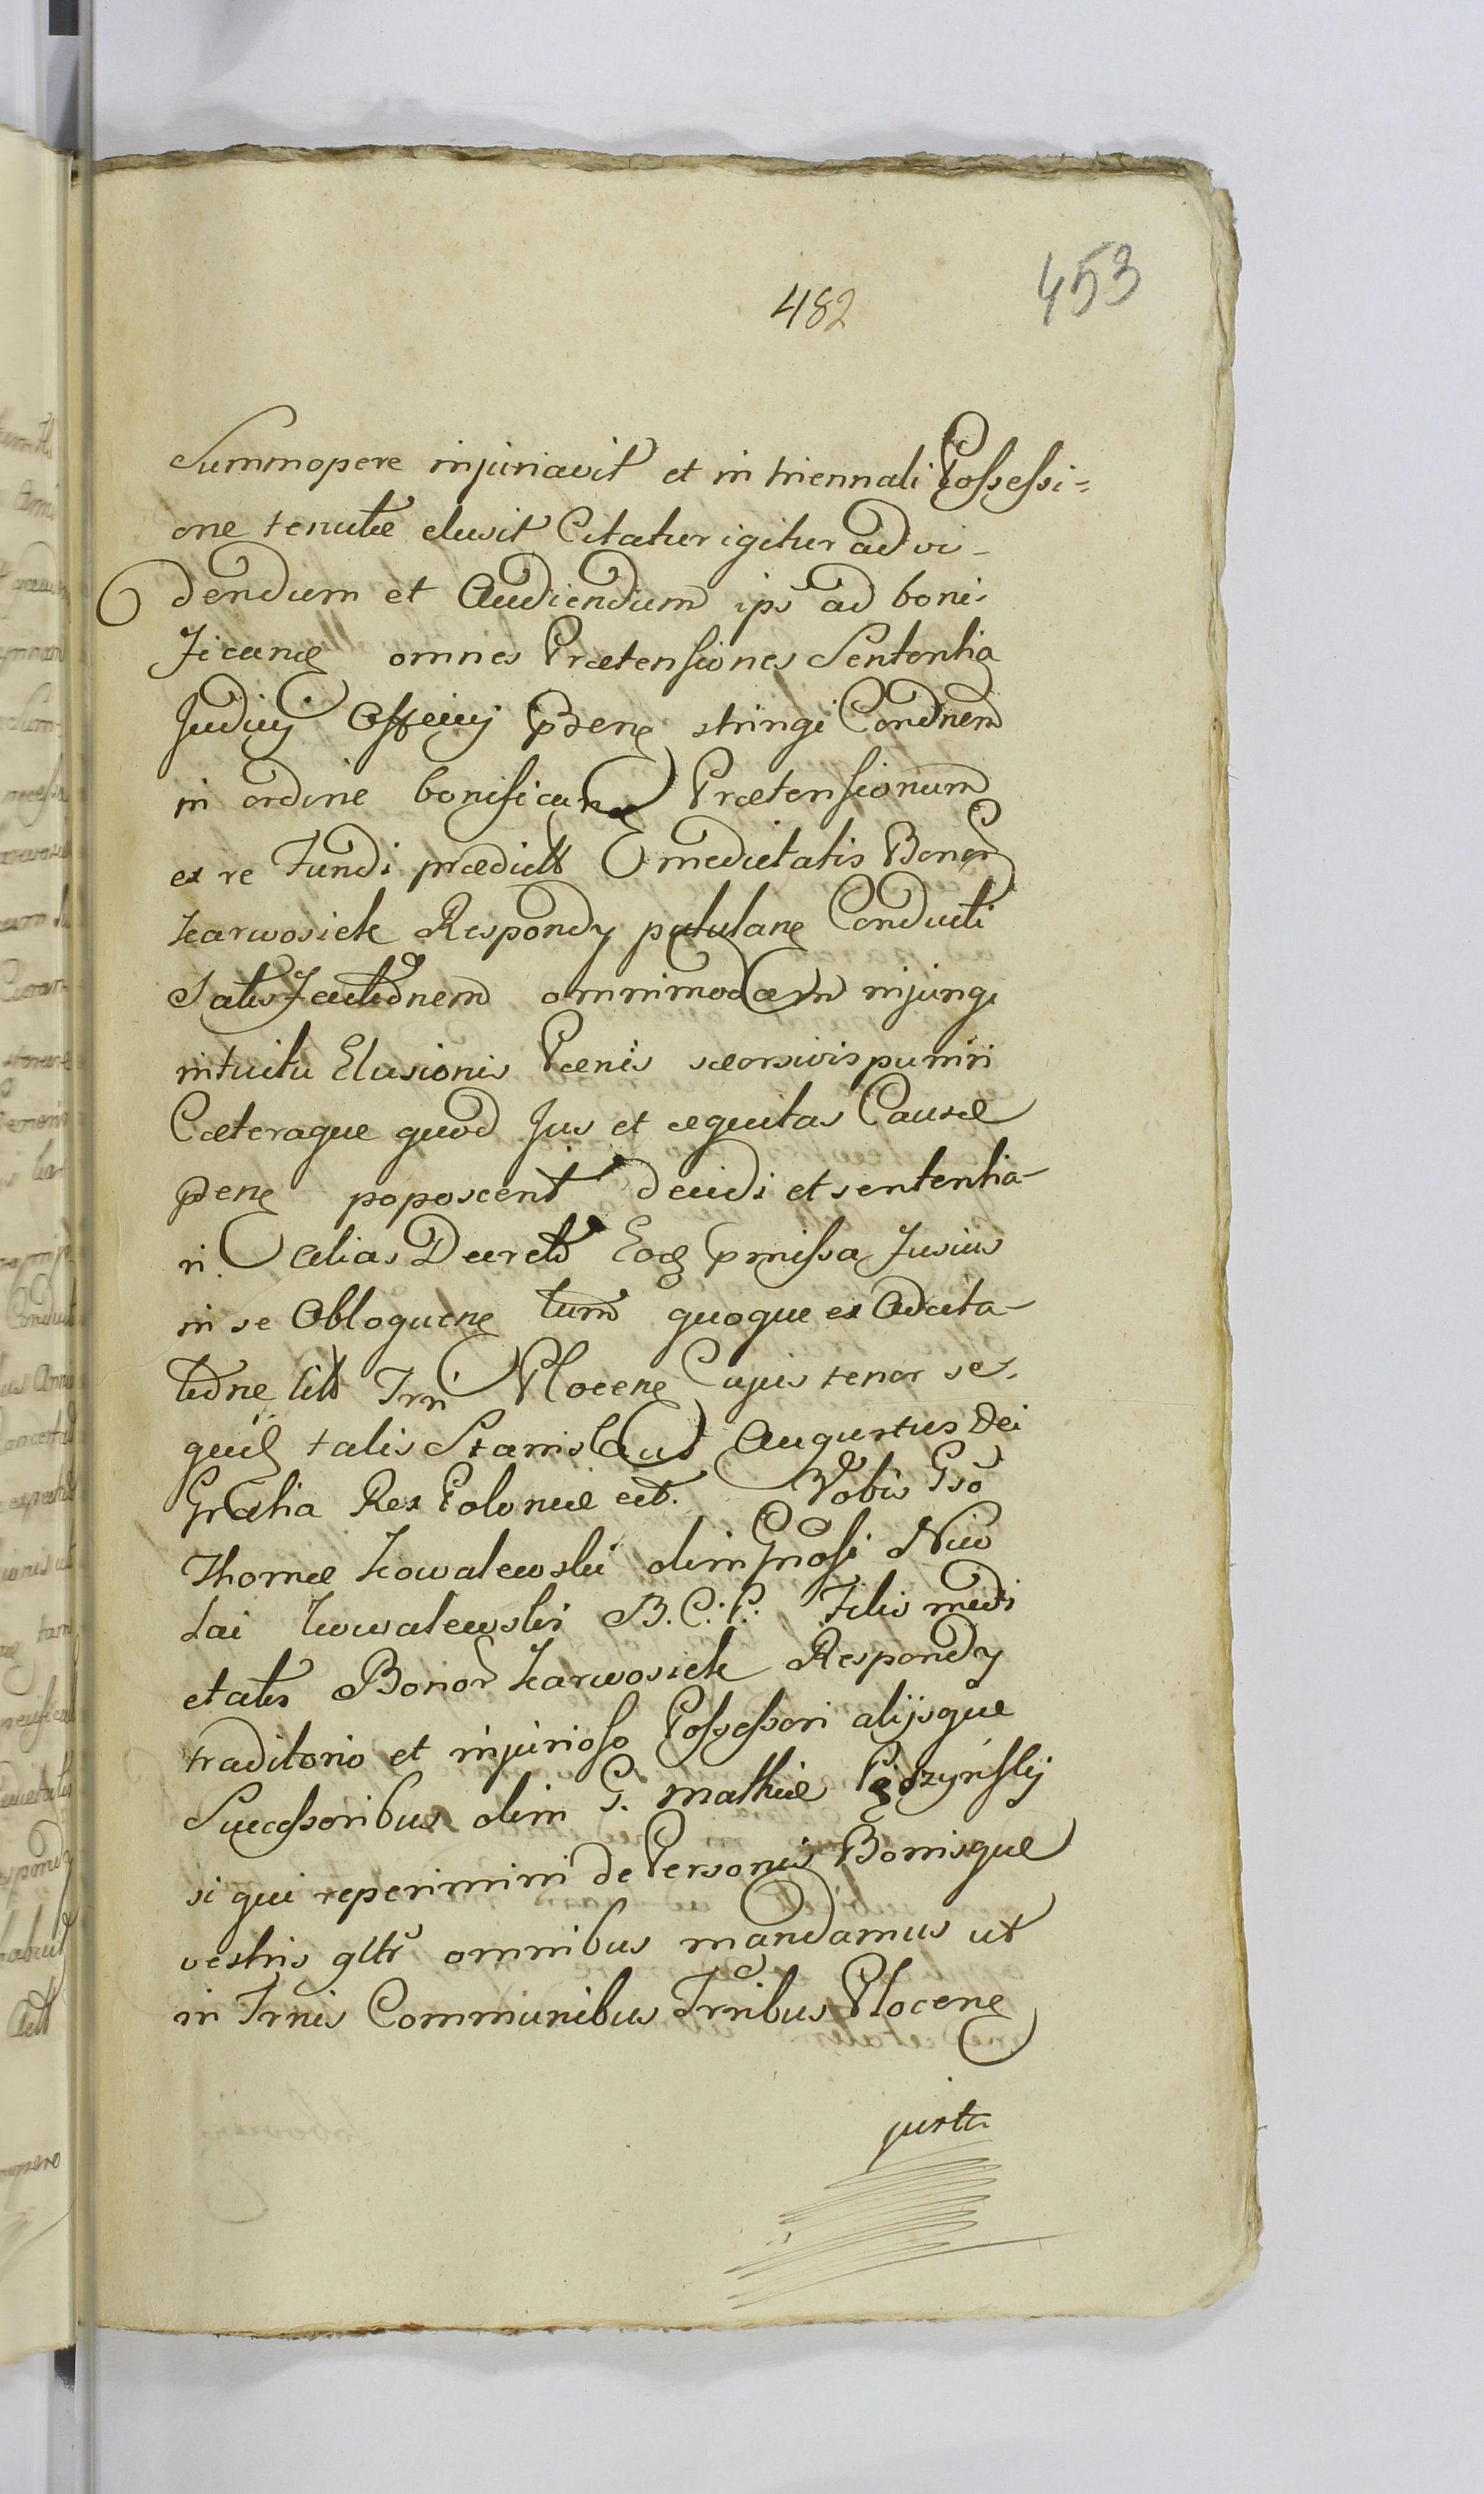 453
482
Summopere injuriavit et in triennali Possessi=
one tenutæ elusit Citatur igitur ad vi-
dendum et Audiendum ips ad boni-
ficand omnes Prætensiones Sententia
Judicij Officij pdene stringi Condnem
in ordine bonificand Prætensionum
ex re Fundi prædictt medietatis Bonor
Karwosiek Respondy putulane Conducti
Satisfactidnem omnimodam injungi
intuitu Elusionis Pænis sæorsivis puniri
Cæteraque quod Jus et æquitas Causæ
pdene poposcent decidi et sententia-
ri alias Decretd Eod pmissa fusius
in se Obloquene tum quoque ex Adcita-
tidne litt Trri Plocene Cujus tenor se-
quit talis Stanislaus Augustus Dei
Gratia Rex Poloniæ ect. Vobis Gso
Thomæ Kowalewski olim Gnosi Nico
lai Kowalewski B. C. P. Filio medi
etatis Bonor Karwosiek Respondy
traditorio et injurioso Possessori alijsque
Successoribus olim G. Mathiæ
si qui reperimini de Personis Bonisque
vestris gltr omnibus mandamus ut
in Trnis Communibus Trribus Plocene
juxta